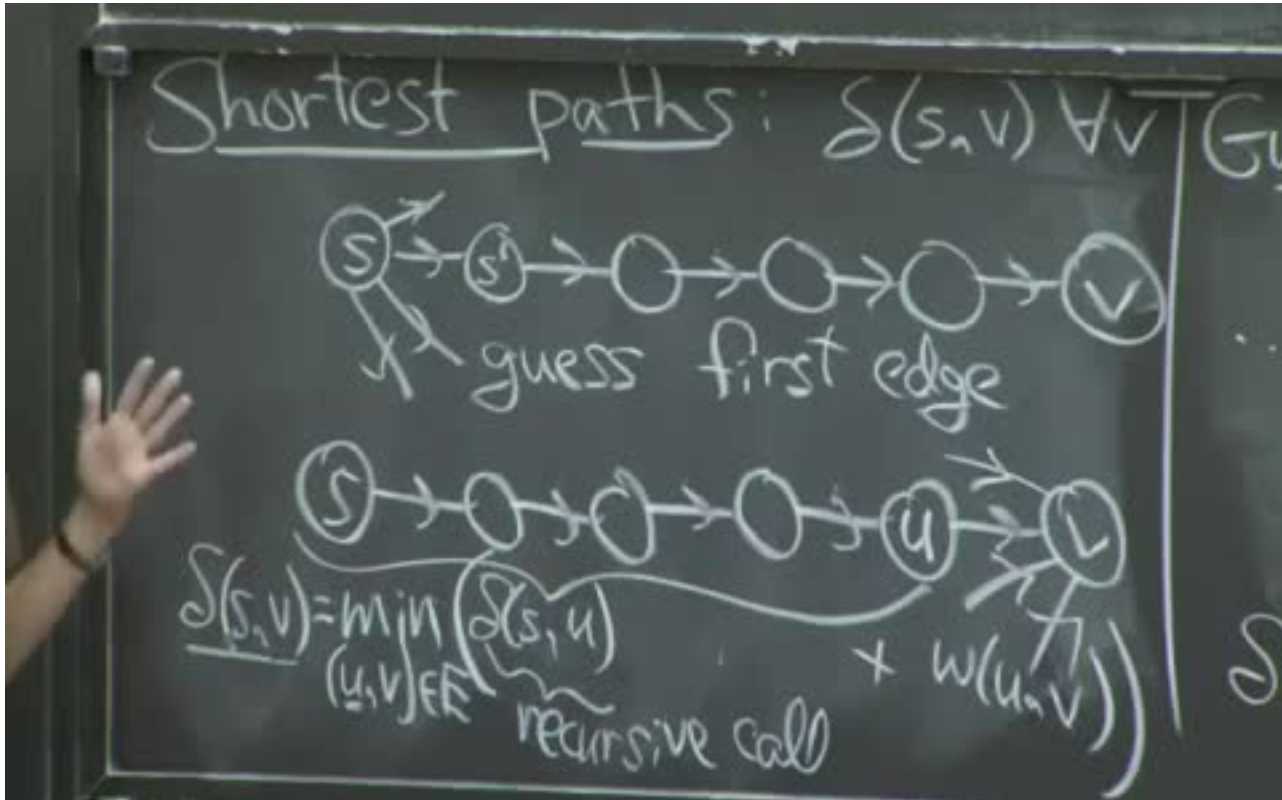 Shortest paths: δ(s,v) ∀v
s s' v
guess first edge
s u v
δ(s,v) = min (δ(s,u) + w(u,v))
(u,v)∈E
recursive call
Gu
...
δ